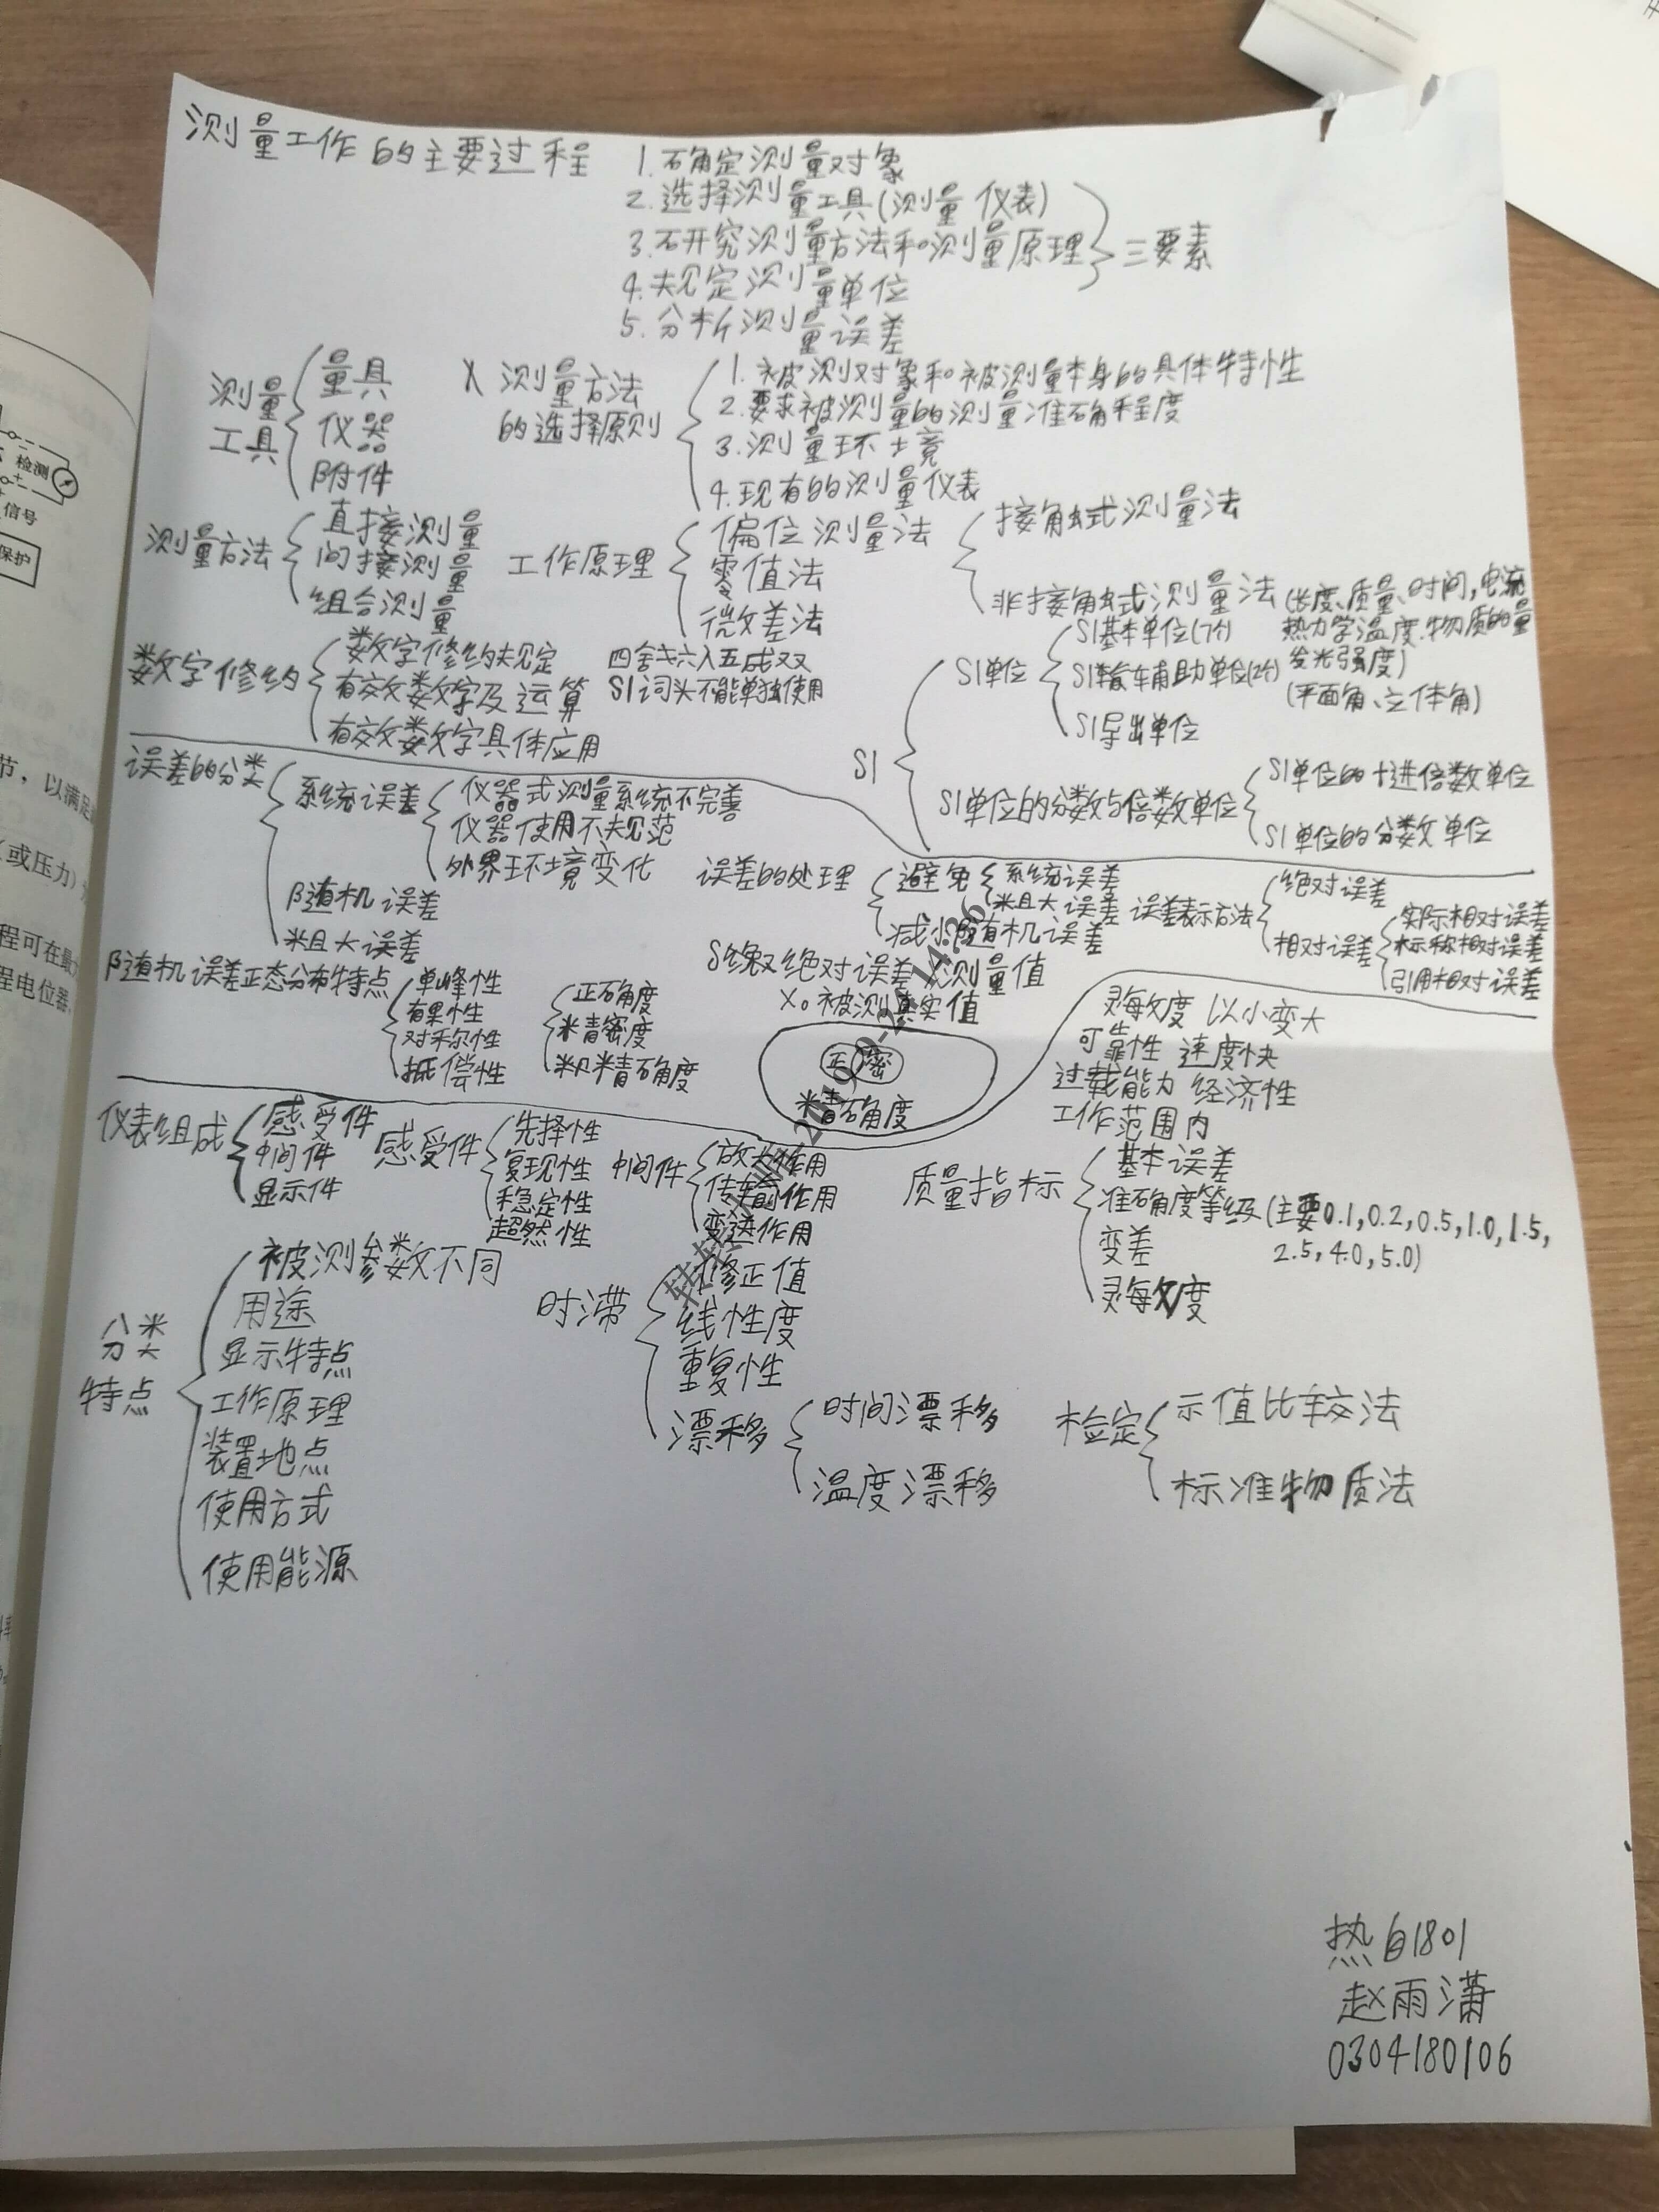 测量工作的主要过程
1.确定测量对象
2.选择测量工具(测量仪表)
3.研究测量方法和测量原理
三要素
4.规定测量单位
5.分析测量误差
测量
工具
量具
仪器
附件
X 测量方法
的选择原则
1.被测对象和被测量本身的具体特性
2.要求被测量的测量准确程度
3.测量环境
4.现有的测量仪表
测量方法
直接测量
间接测量
组合测量
工作原理
偏位测量法
零值法
微差法
接触式测量法
非接触式测量法
数字修约
数字修约规定
有效数字及运算
有效数字具体应用
四舍六入五成双
SI词头不能单独使用
SI
SI单位
SI基本单位(7个)
(长度、质量、时间,电流
热力学温度.物质的量
发光强度)
SI辅助单位(2个)
(平面角、立体角)
SI导出单位
SI单位的分数与倍数单位
SI单位的十进倍数单位
SI单位的分数单位
误差的分类
系统误差
仪器式测量系统不完善
仪器使用不规范
外界环境变化
随机误差
粗大误差
误差的处理
避免
系统误差
粗大误差
减小随机误差
误差表示方法
绝对误差
相对误差
实际相对误差
标称相对误差
引用相对误差
随机误差正态分布特点
单峰性
有界性
对称性
抵偿性
正确度
精密度
精确度
绝对误差 X测量值
X0被测真实值
正 密
精确度
灵敏度 以小变大
可靠性 速度快
过载能力 经济性
工作范围内
仪表组成
感受件
中间件
显示件
感受件
先择性
复现性
稳定性
超然性
中间件
放大作用
传输作用
变送作用
质量指标
基本误差
准确度等级(主要0.1,0.2,0.5,1.0,1.5,
2.5,4.0,5.0)
变差
灵敏度
分类
特点
被测参数不同
用途
显示特点
工作原理
装置地点
使用方式
使用能源
时滞
修正值
线性度
重复性
漂移
时间漂移
温度漂移
检定
示值比较法
标准物质法
热自1801
赵雨潇
0304180106
检测
信号
保护
节，以满足
（或压力）
程可在最
程电位器